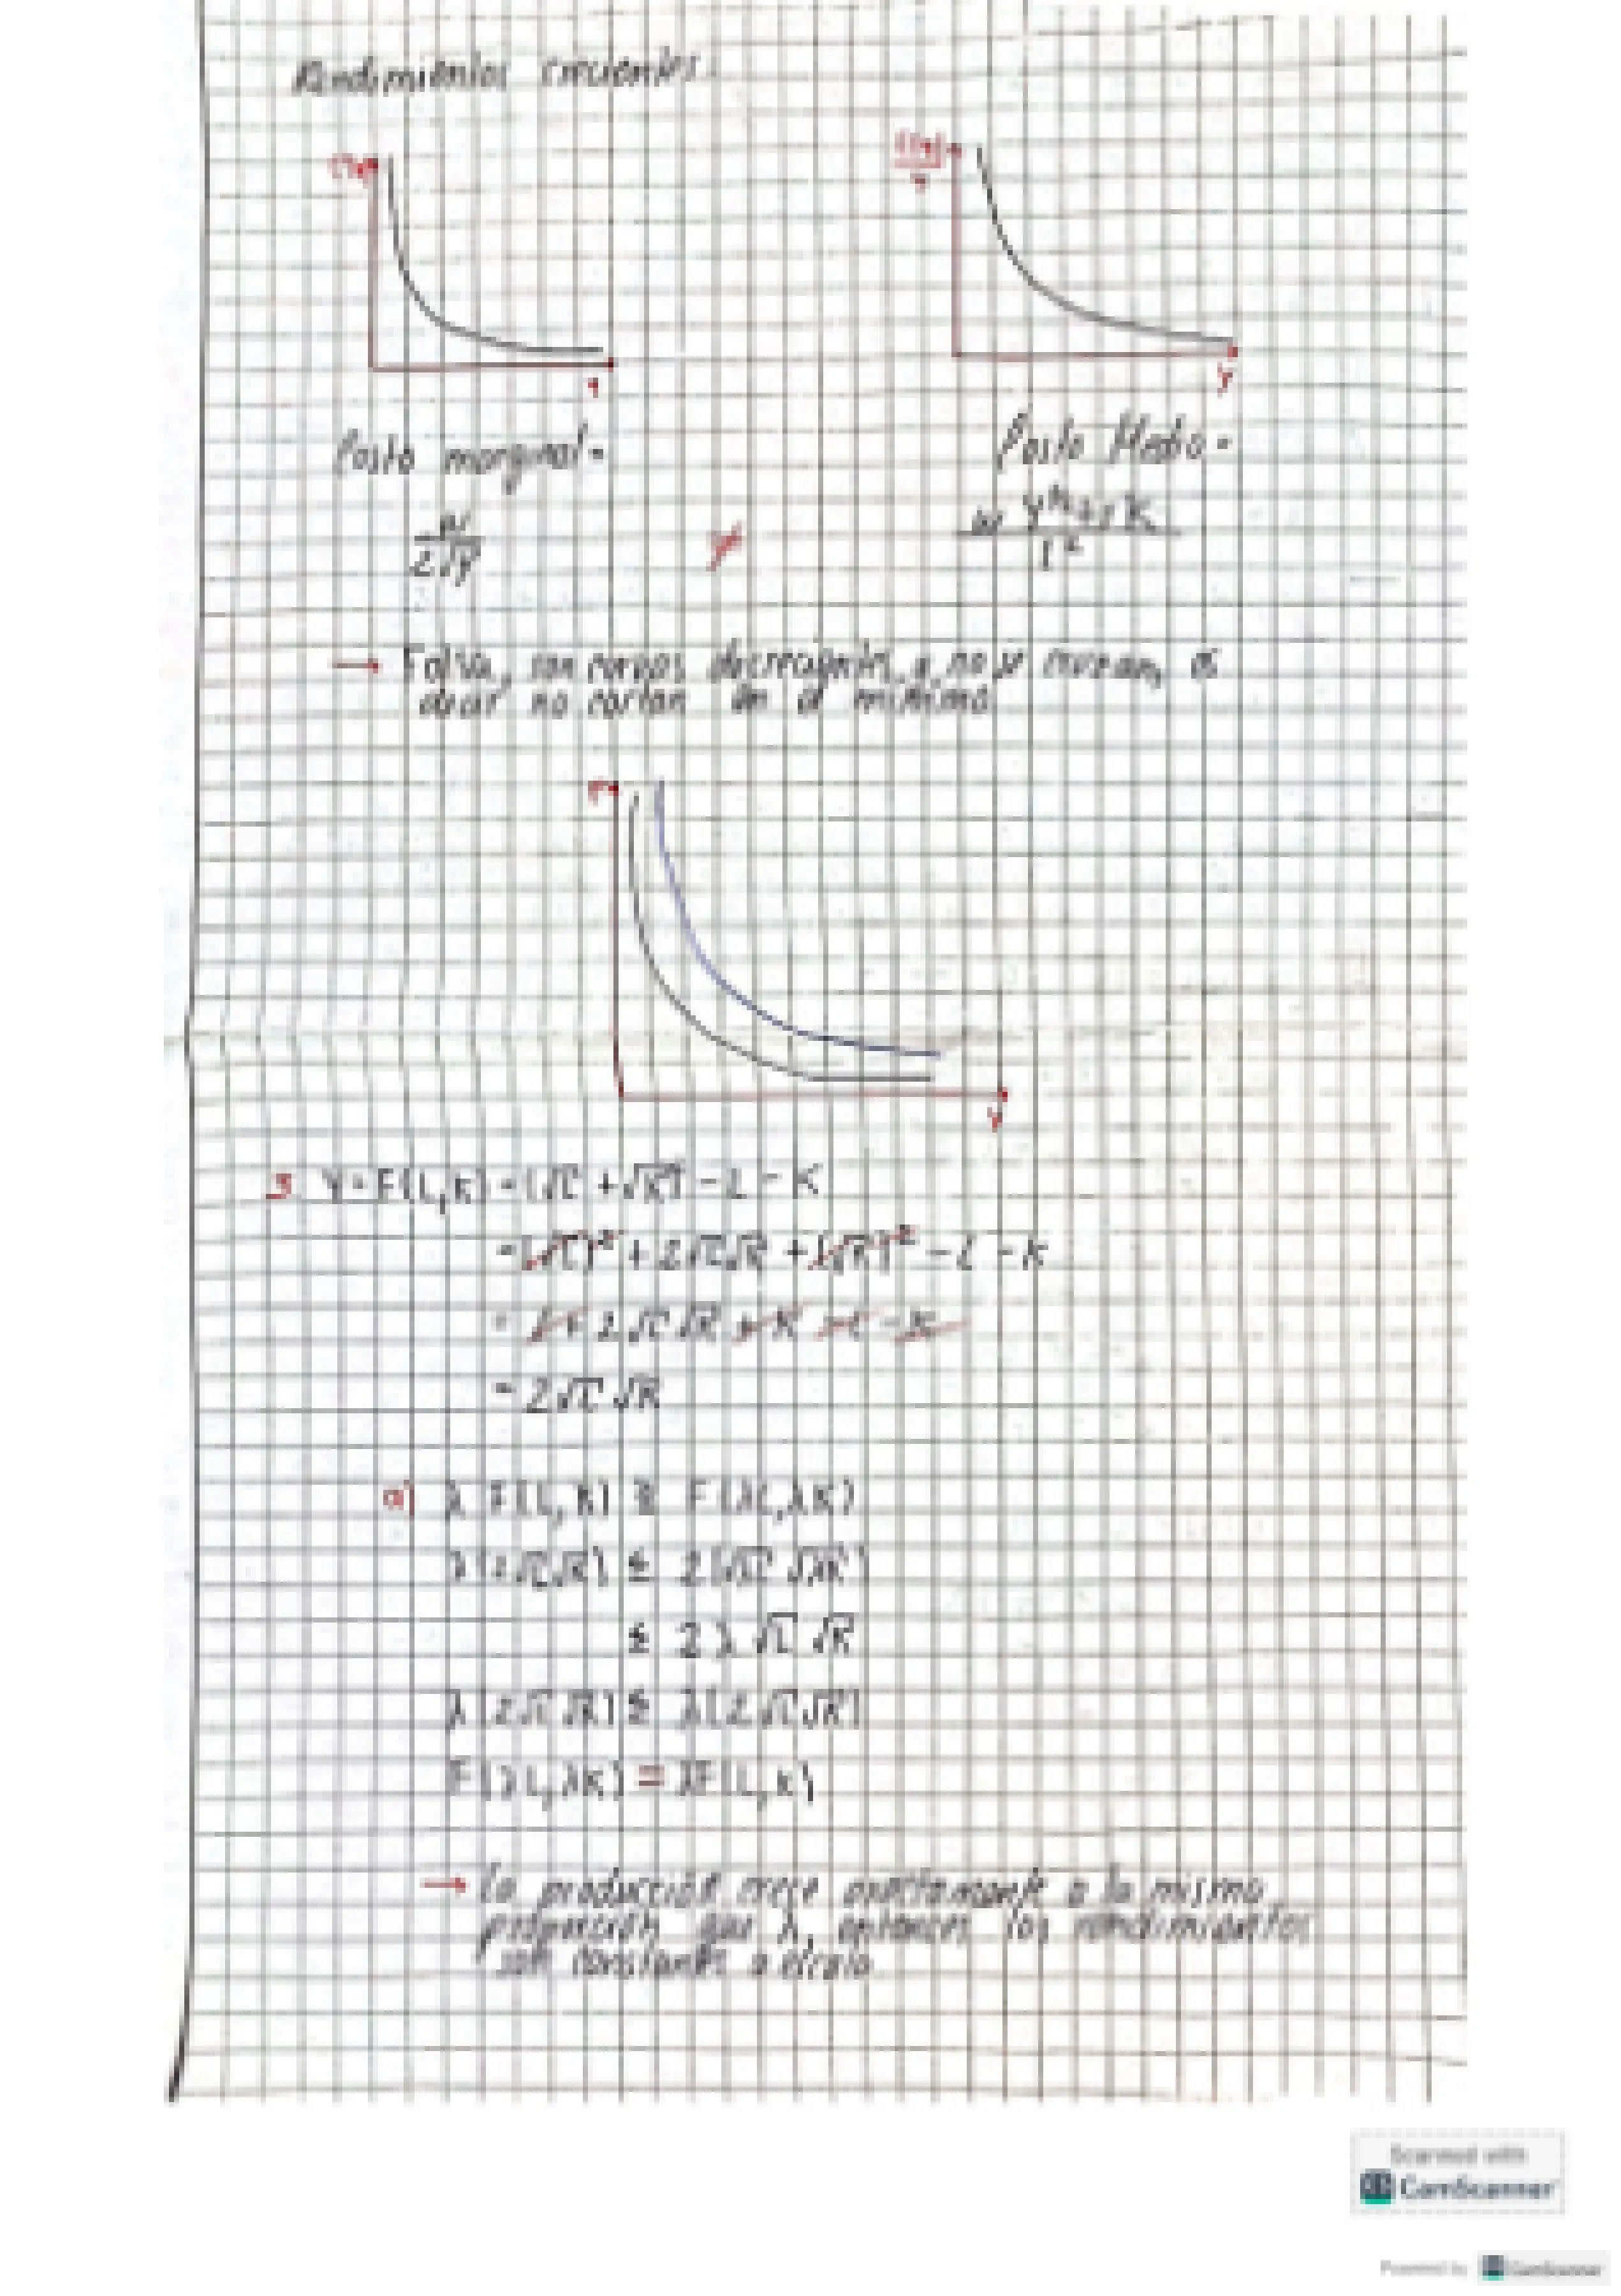 Rendimientos crecientes.
y
y
Costo marginal =
Costo Medio =
w
2√y
≠
→ Falsa, son curvas decrecientes y no se cruzan, es
decir no cortan en el minimo
y
3 Y = F(L,K) = (√L + √K)² - L - K
= (√L)² + 2√L√K + (√K)² - L - K
= L + 2√L √K + K - L - K
= 2√L √K
a) λ F(L,K) ≷ F(λL,λK)
λ(2√L√K) ≷ 2(√λL √λK)
≷ 2λ √L √K
λ(2√L √K) ≷ λ(2√L√K)
F(λL,λK) = λF(L,K)
→ La producción crece exactamente a la misma
proporción que λ, entonces los rendimientos
son constantes a escala
Scanned with
CamScanner
Powered by CamScanner